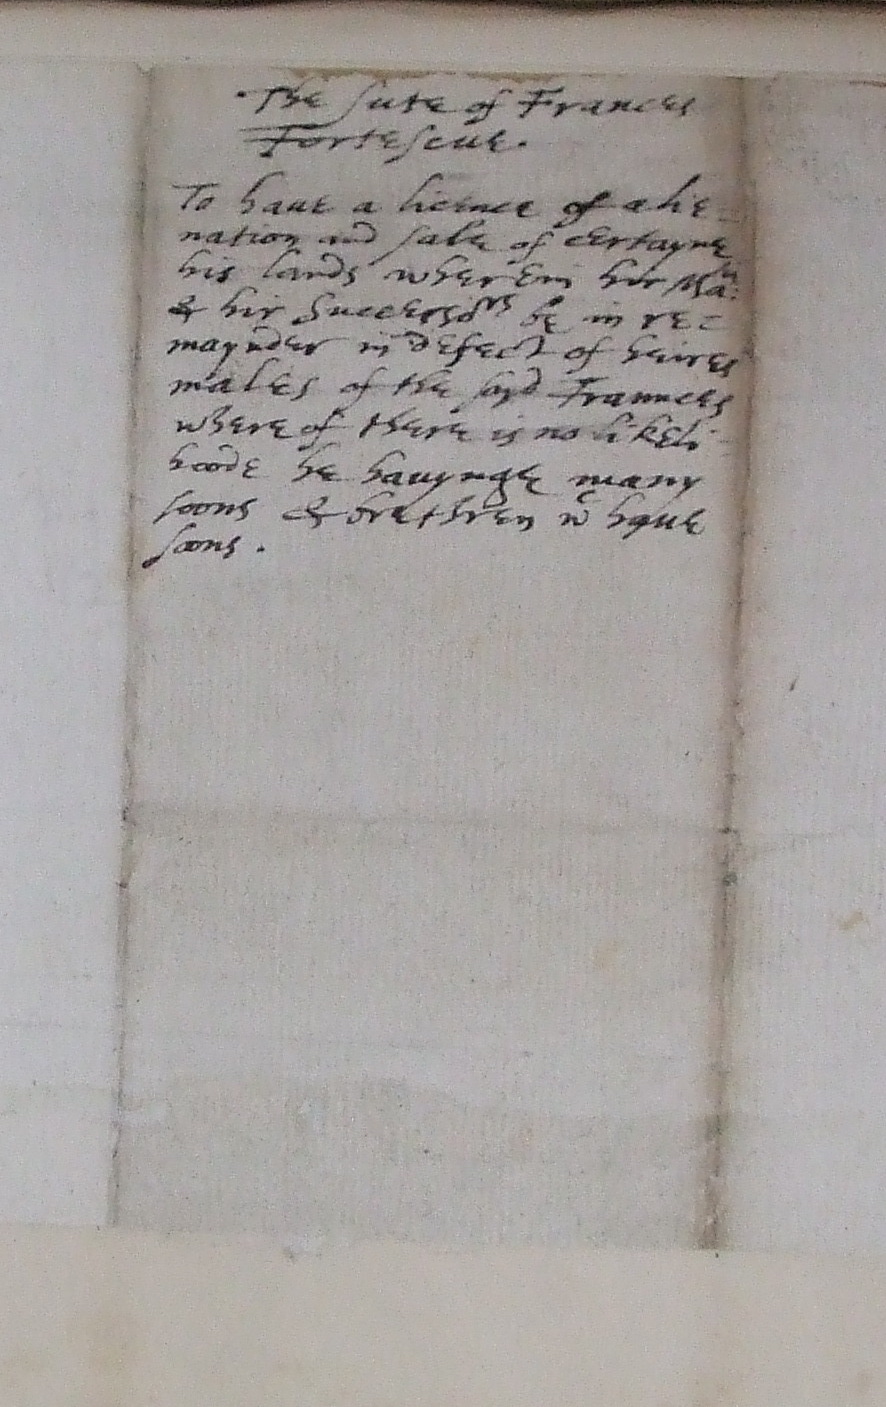 The sute of Frances
Fortescue.
To haue a licence of alie=
nation and sale of certayne
his lands wherein hir Ma:tie
& hir Successors be in re=
maynder in defect of heires
males of the sayd Fraunces
where of there is no likeli=
hoode he hauynge many
soons & brethren wch haue
soons.